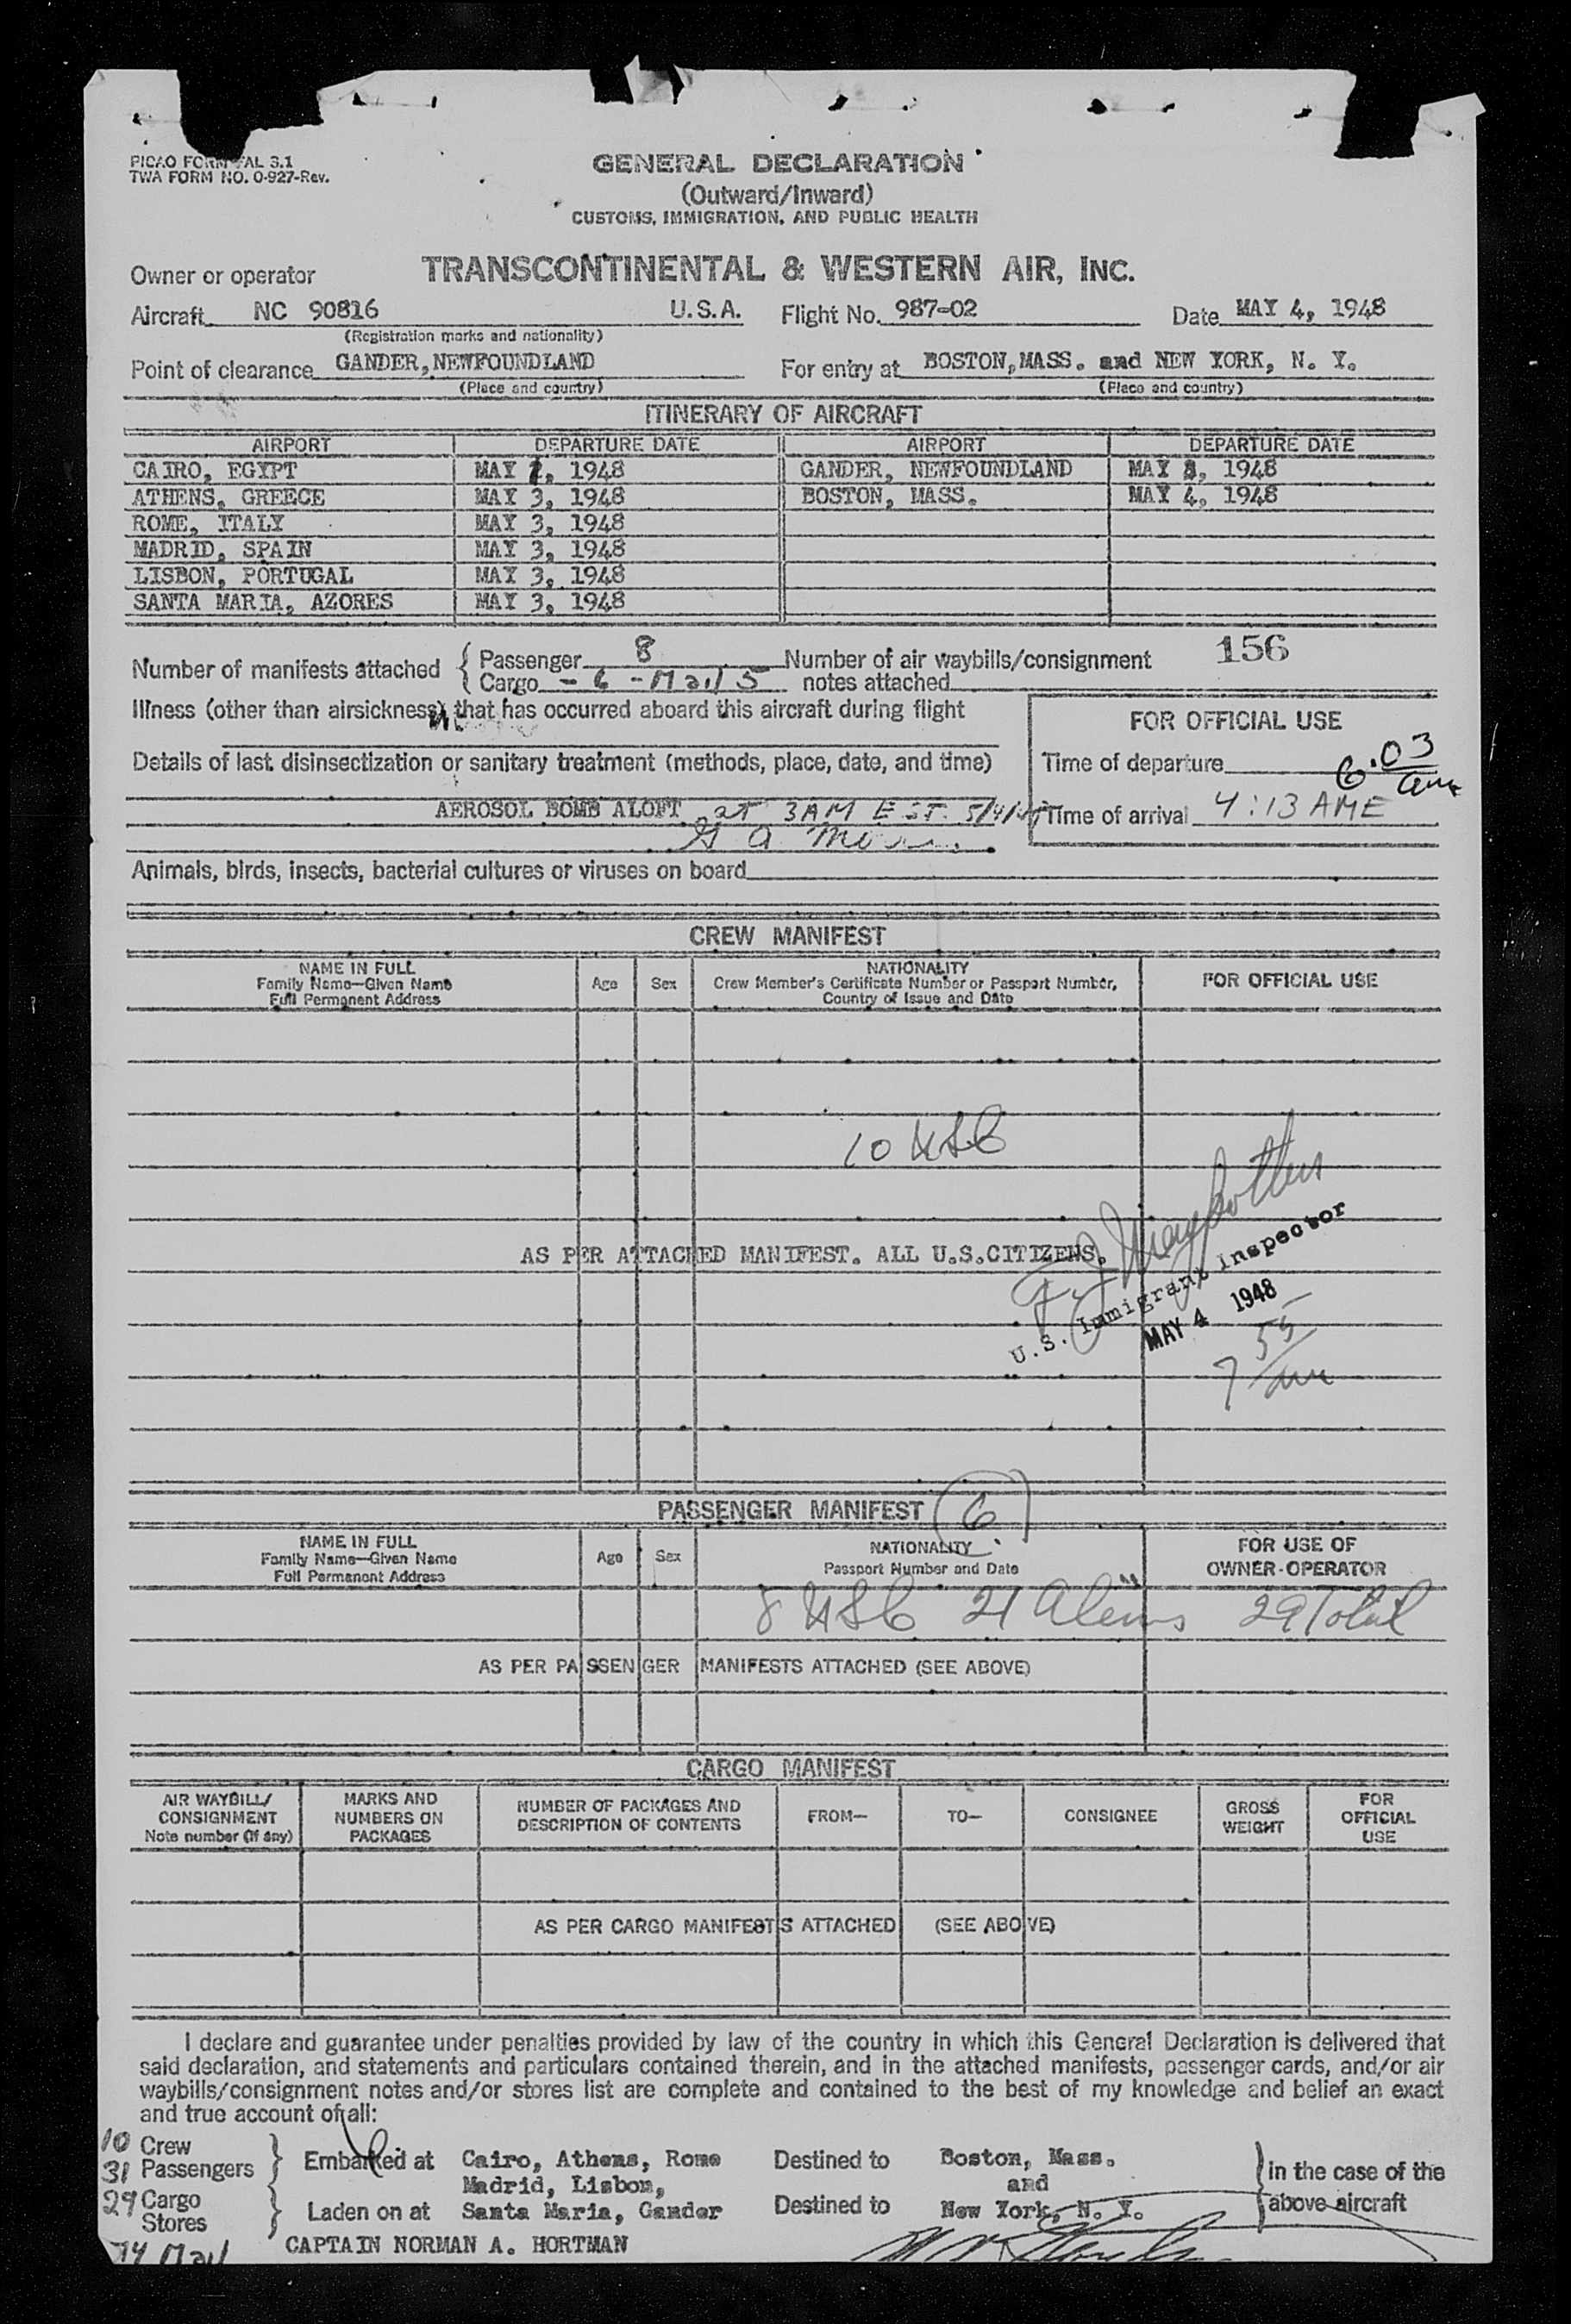 PICAO FORM FAL 3.1
TWA FORM NO. O-927-Rev.
GENERAL DECLARATION
(Outward/Inward)
CUSTOMS, IMMIGRATION, AND PUBLIC HEALTH
Owner or operator TRANSCONTINENTAL & WESTERN AIR, INC.
Aircraft NC 90816 U.S.A. Flight No. 987-02 Date MAY 4, 1948
(Registration marks and nationality)
Point of clearance GANDER, NEWFOUNDLAND For entry at BOSTON, MASS. and NEW YORK, N. Y.
(Place and country) (Place and country)
ITINERARY OF AIRCRAFT
AIRPORT DEPARTURE DATE AIRPORT DEPARTURE DATE
CAIRO, EGYPT MAY 1948 GANDER, NEWFOUNDLAND MAY 1948
ATHENS, GREECE MAY 3, 1948 BOSTON, MASS. MAY 4, 1948
ROME, ITALY MAY 3, 1948
MADRID, SPAIN MAY 3, 1948
LISBON, PORTUGAL MAY 3, 1948
SANTA MARIA, AZORES MAY 3, 1948
156
Number of manifests attached { Passenger 8 Number of air waybills/consignment
Cargo - 6 - Mail 5 notes attached
Illness (other than airsickness) that has occurred aboard this aircraft during flight
FOR OFFICIAL USE
Details of last disinsectization or sanitary treatment (methods, place, date, and time)
Time of departure 6.03 am
AEROSOL BOMB ALOFT at 3AM EST. 5/4/48
Time of arrival 4:13 AME
G A
Animals, birds, insects, bacterial cultures or viruses on board
CREW MANIFEST
NAME IN FULL
Family Name—Given Name
Full Permanent Address
Age Sex
NATIONALITY
Crew Member's Certificate Number or Passport Number,
Country of Issue and Date
FOR OFFICIAL USE
10 USC
AS PER ATTACHED MANIFEST. ALL U.S.CITIZENS.
U.S. Immigrant Inspector
MAY 4 1948
7 55 am
PASSENGER MANIFEST (6)
NAME IN FULL
Family Name—Given Name
Full Permanent Address
Age Sex
NATIONALITY
Passport Number and Date
FOR USE OF
OWNER-OPERATOR
8 USC 21 Aliens 29 Total
AS PER PASSENGER MANIFESTS ATTACHED (SEE ABOVE)
CARGO MANIFEST
AIR WAYBILL/
CONSIGNMENT
Note number (if any)
MARKS AND
NUMBERS ON
PACKAGES
NUMBER OF PACKAGES AND
DESCRIPTION OF CONTENTS
FROM—
TO—
CONSIGNEE
GROSS
WEIGHT
FOR
OFFICIAL
USE
AS PER CARGO MANIFESTS ATTACHED (SEE ABOVE)
I declare and guarantee under penalties provided by law of the country in which this General Declaration is delivered that
said declaration, and statements and particulars contained therein, and in the attached manifests, passenger cards, and/or air
waybills/consignment notes and/or stores list are complete and contained to the best of my knowledge and belief an exact
and true account of all:
10 Crew
31 Passengers } Embarked at Cairo, Athens, Rome Destined to Boston, Mass. } in the case of the
Madrid, Lisbon, and
29 Cargo
Stores } Laden on at Santa Maria, Gander Destined to New York, N. Y. above aircraft
74 Mail CAPTAIN NORMAN A. HORTMAN